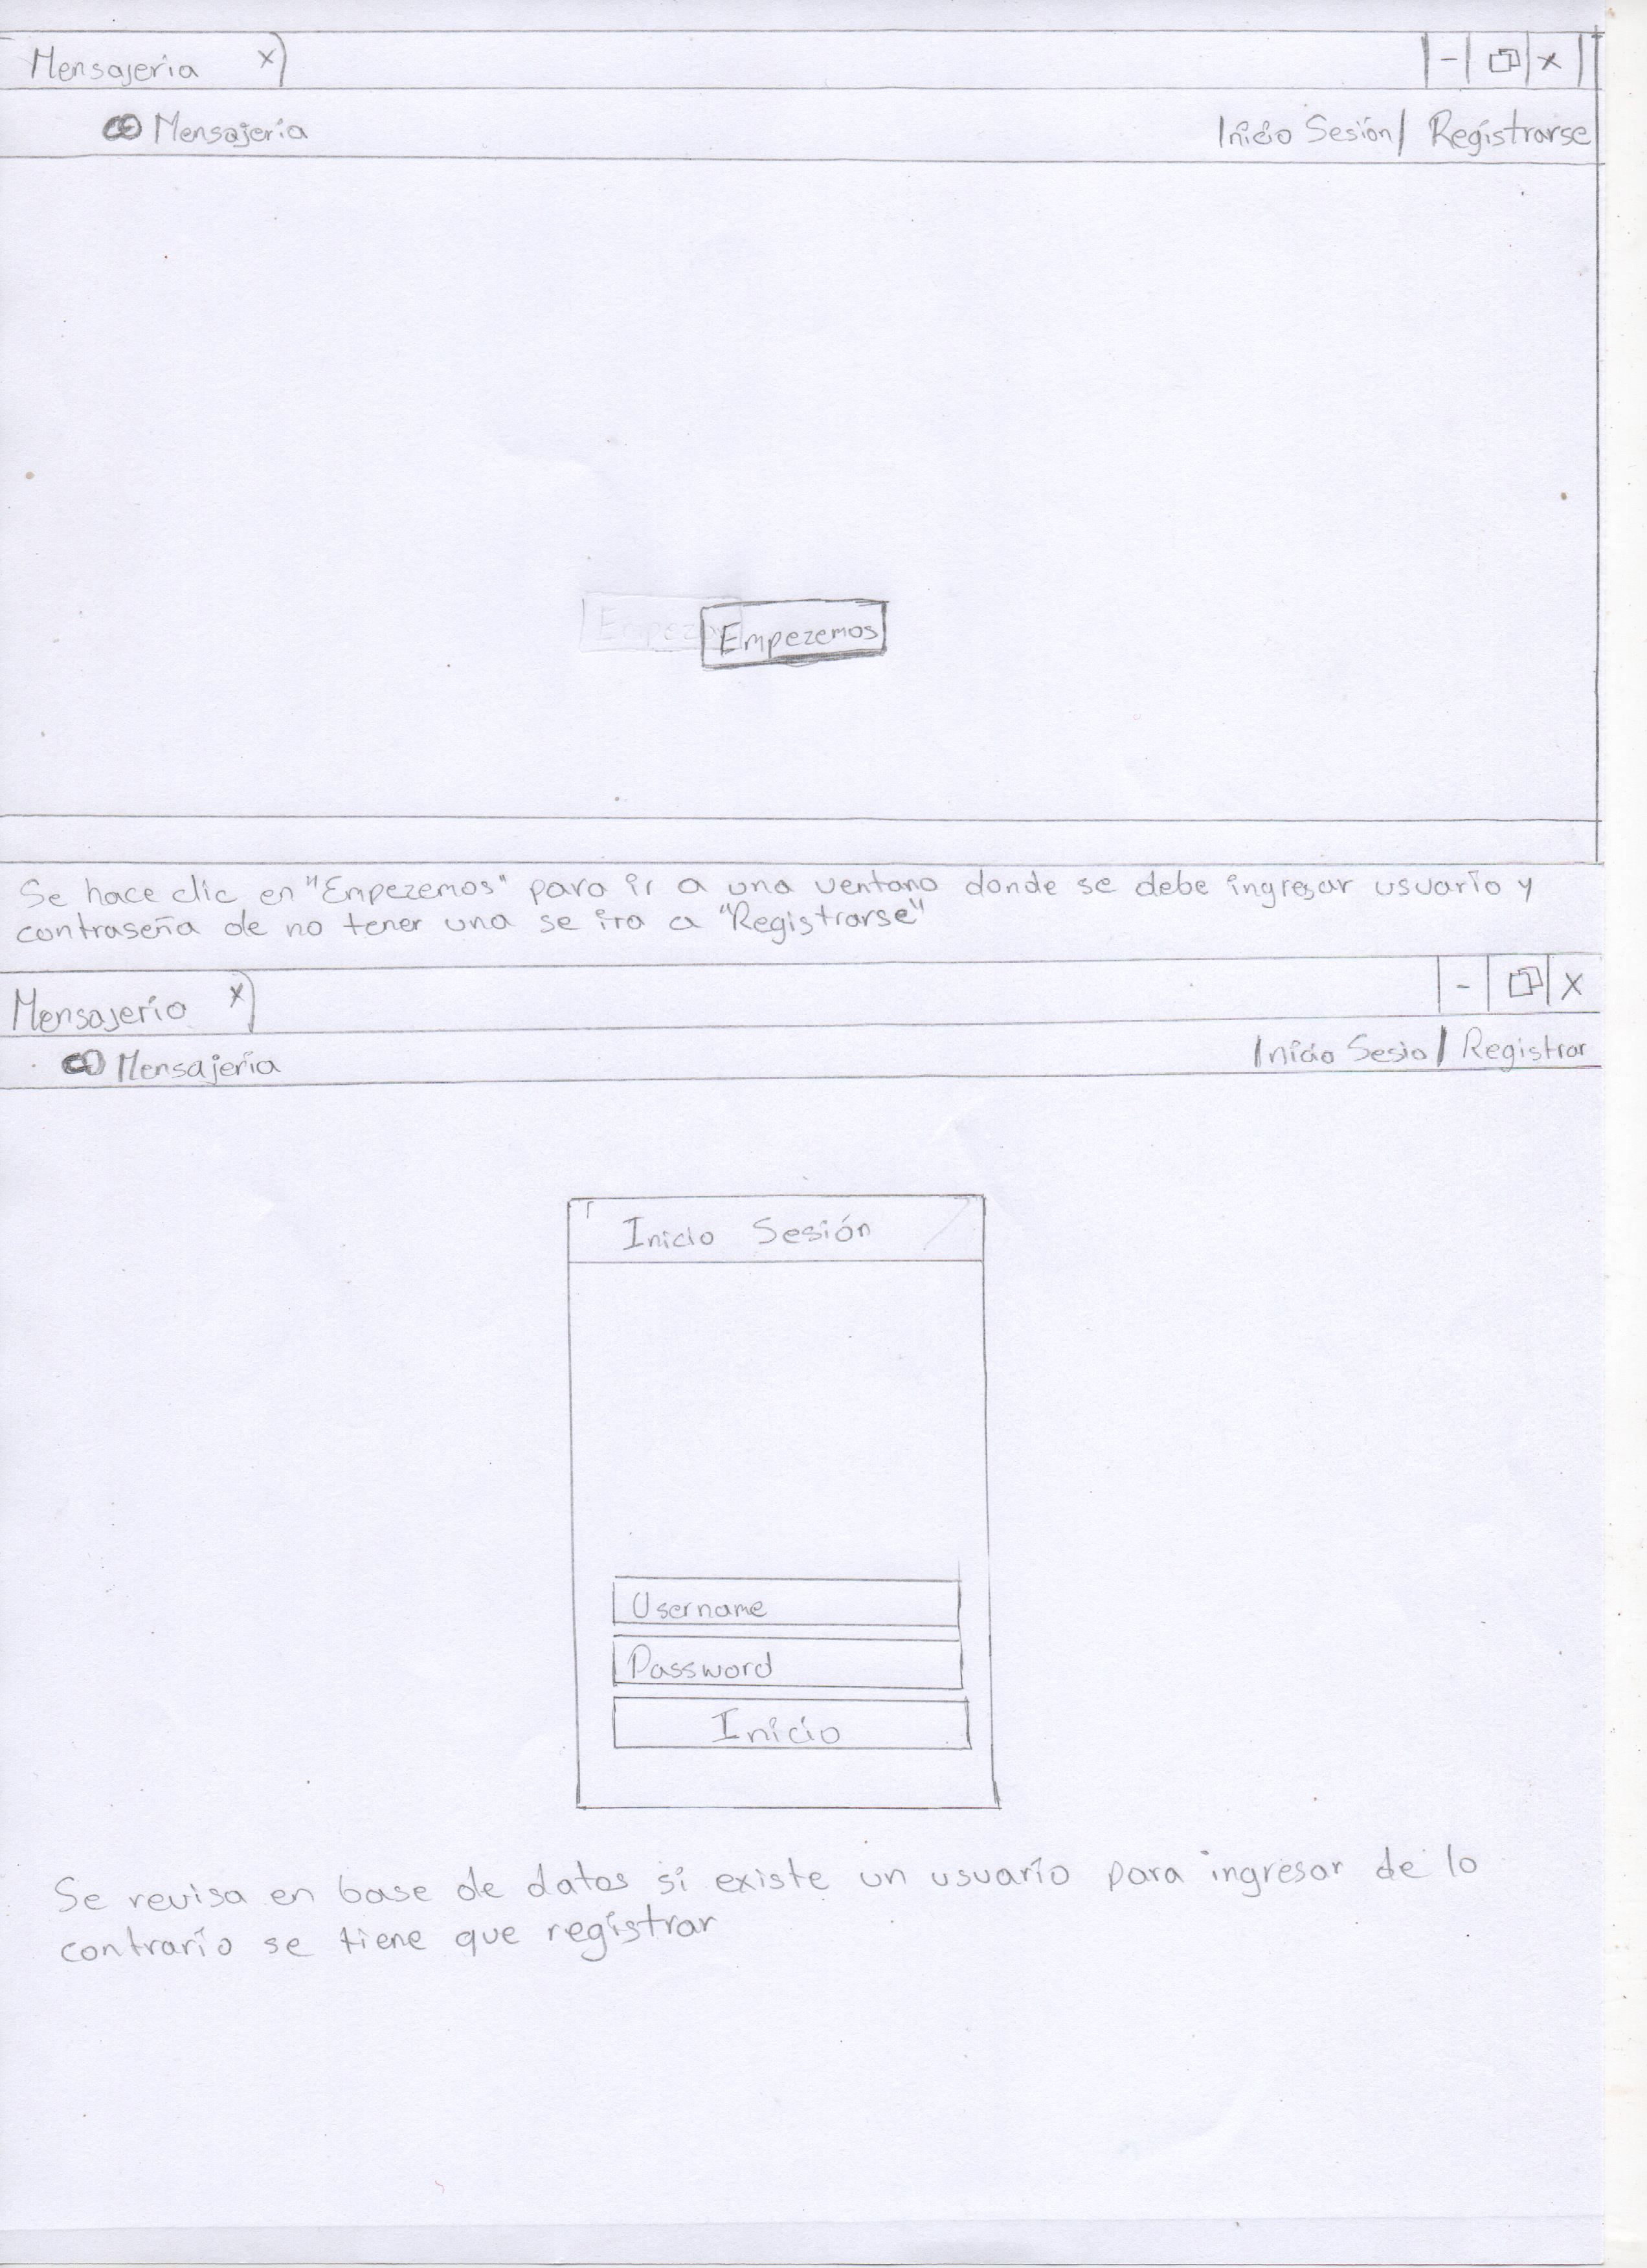 Mensajeria x
- x
Mensajería Inicio Sesión | Registrarse
Empez
Empezemos
Se hace clic en "Empezemos" para ir a una ventana donde se debe ingresar usuario y
contraseña de no tener una se ira a "Registrarse"
Mensajerio x
- x
Mensajería Inicio Sesio | Registrar
Inicio Sesión
Username
Password
Inicio
Se revisa en base de datos si existe un usuario para ingresar de lo
contrario se tiene que registrar